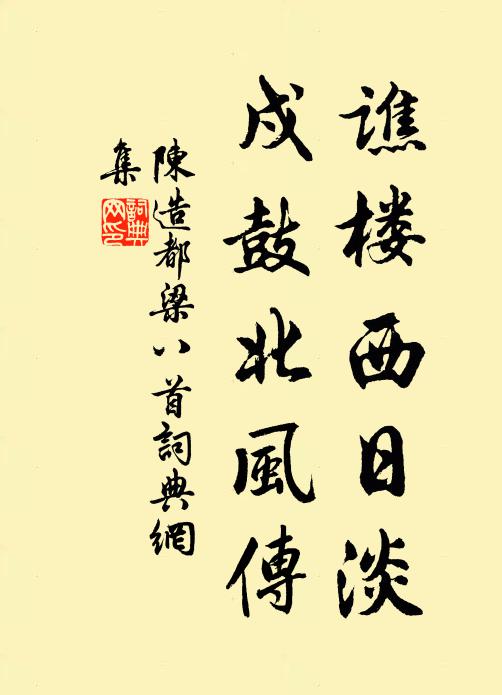 譙楼西日淡
戍鼓北風傳
陳造都梁八首詞典網
集
詞典网印